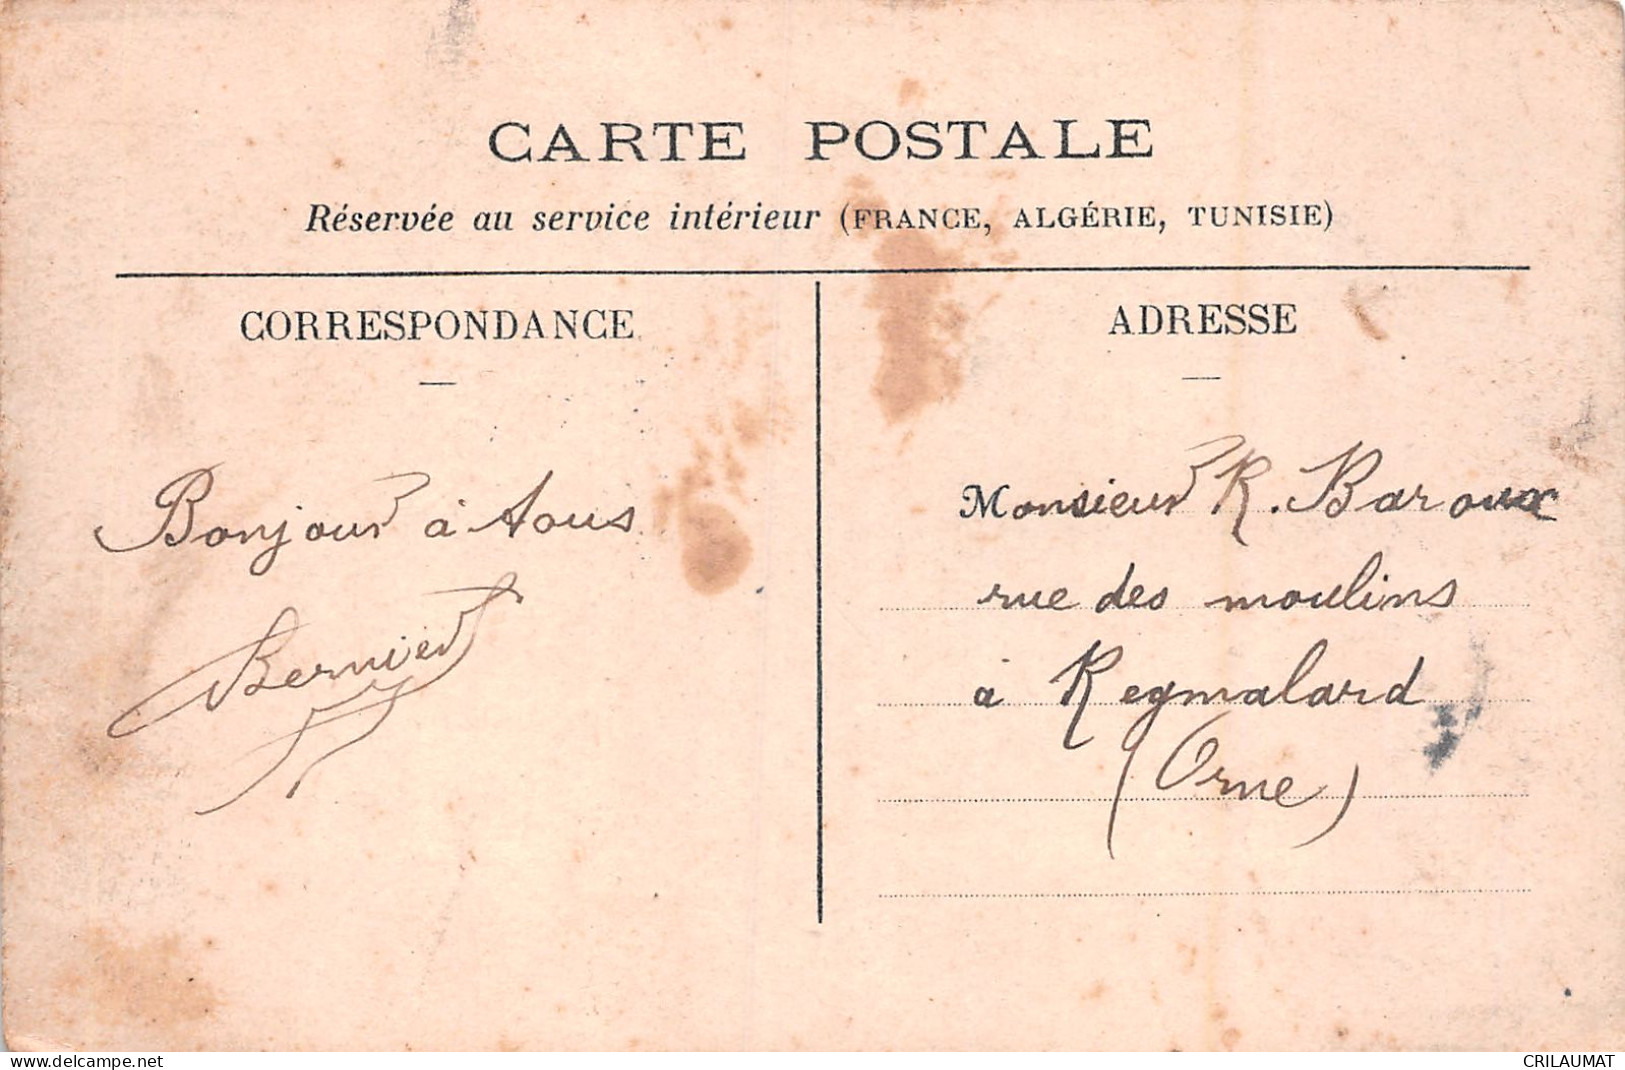 CARTE POSTALE
Réservée au service intérieur (FRANCE, ALGÉRIE, TUNISIE)
CORRESPONDANCE
Bonjour à tous
Bernier
ADRESSE
Monsieur R. Baroux
rue des moulins
à Regmalard
(Orne)
www.delcampe.net
CRILAUMAT